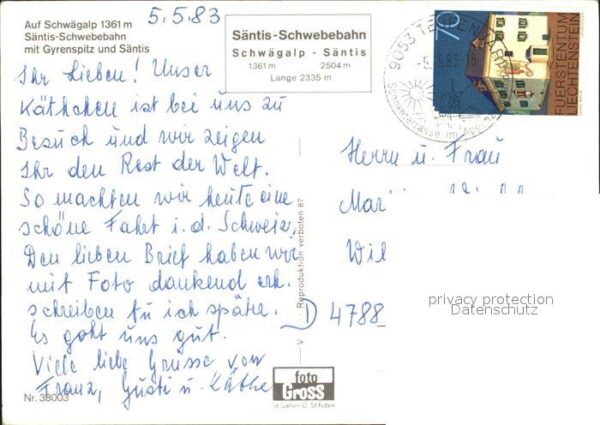 Auf Schwägalp 1361 m
Säntis-Schwebebahn
mit Gyrenspitz und Säntis
5.5.83
Säntis-Schwebebahn
Schwägalp - Säntis
1361 m 2504 m
Länge 2335 m
9053 TEUFEN AR
-5.5.83-18
Sonnenterrasse im App.
70
FUERSTENTUM
LIECHTENSTEIN
Ihr Lieben! Unser
Käthchen ist bei uns zu
Besuch und wir zeigen
Ihr den Rest der Welt.
So machten wir heute eine
schöne Fahrt i. d. Schweiz.
Den lieben Brief haben wir
mit Foto dankend erh.
schreiben tu ich später.
Es geht uns gut.
Viele liebe Grüsse von
Franz, Gusti u. Käthe
Herrn u. Frau
Wil
D 4788
privacy protection
Datenschutz
V Reproduktion verboten 87
foto
Gross
St. Gallen O. St. Fiden
Nr. 38003